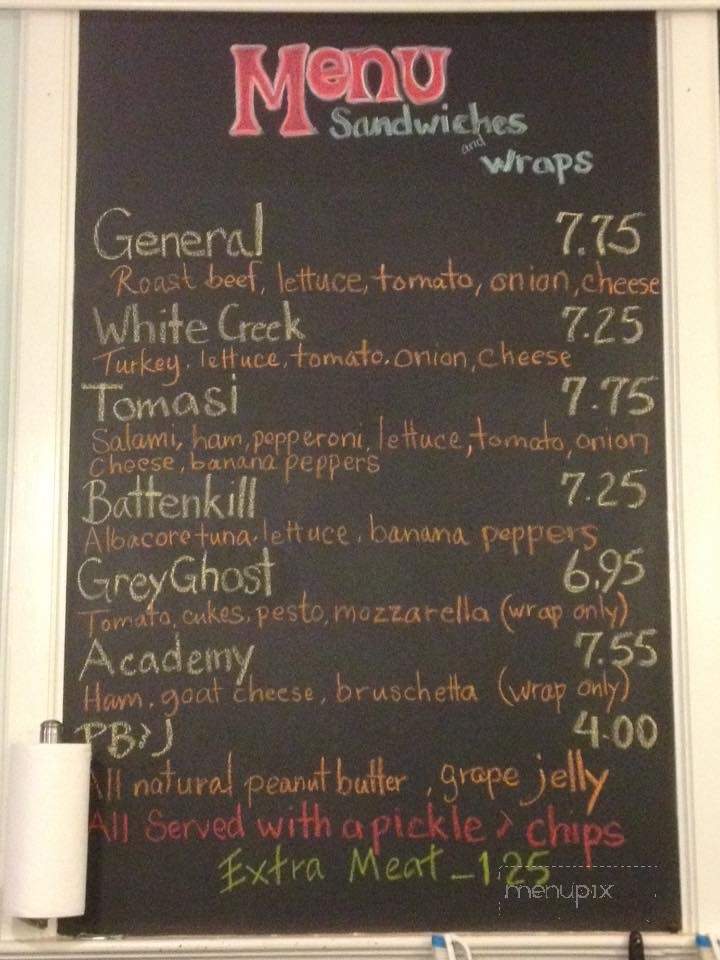 Menu
Sandwiches
and
wraps
General 7.75
Roast beef, lettuce, tomato, onion, cheese
White Creek 7.25
Turkey, lettuce, tomato, onion, cheese
Tomasi 7.75
Salami, ham, pepperoni, lettuce, tomato, onion
cheese, banana peppers
Battenkill 7.25
Albacore tuna, lettuce, banana peppers
Grey Ghost 6.95
Tomato, cukes, pesto, mozzarella (wrap only)
Academy 7.55
Ham, goat cheese, bruschetta (wrap only)
PB&J 4.00
All natural peanut butter, grape jelly
All Served with a pickle & chips
Extra Meat - 1.25
menupix